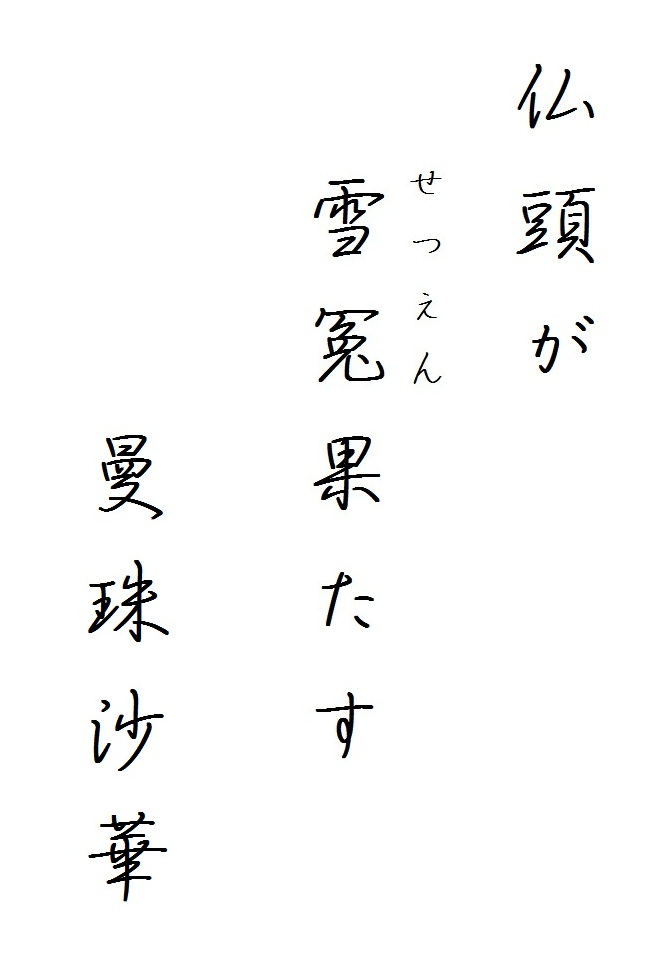 仏頭が
せつえん
雪冤果たす
曼珠沙華